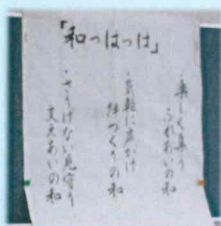 「和っはっは」
・楽しく集う
ふれあいの和
・気軽に声かけ
絆つくりの和
・さりげない見守り
支えあいの和